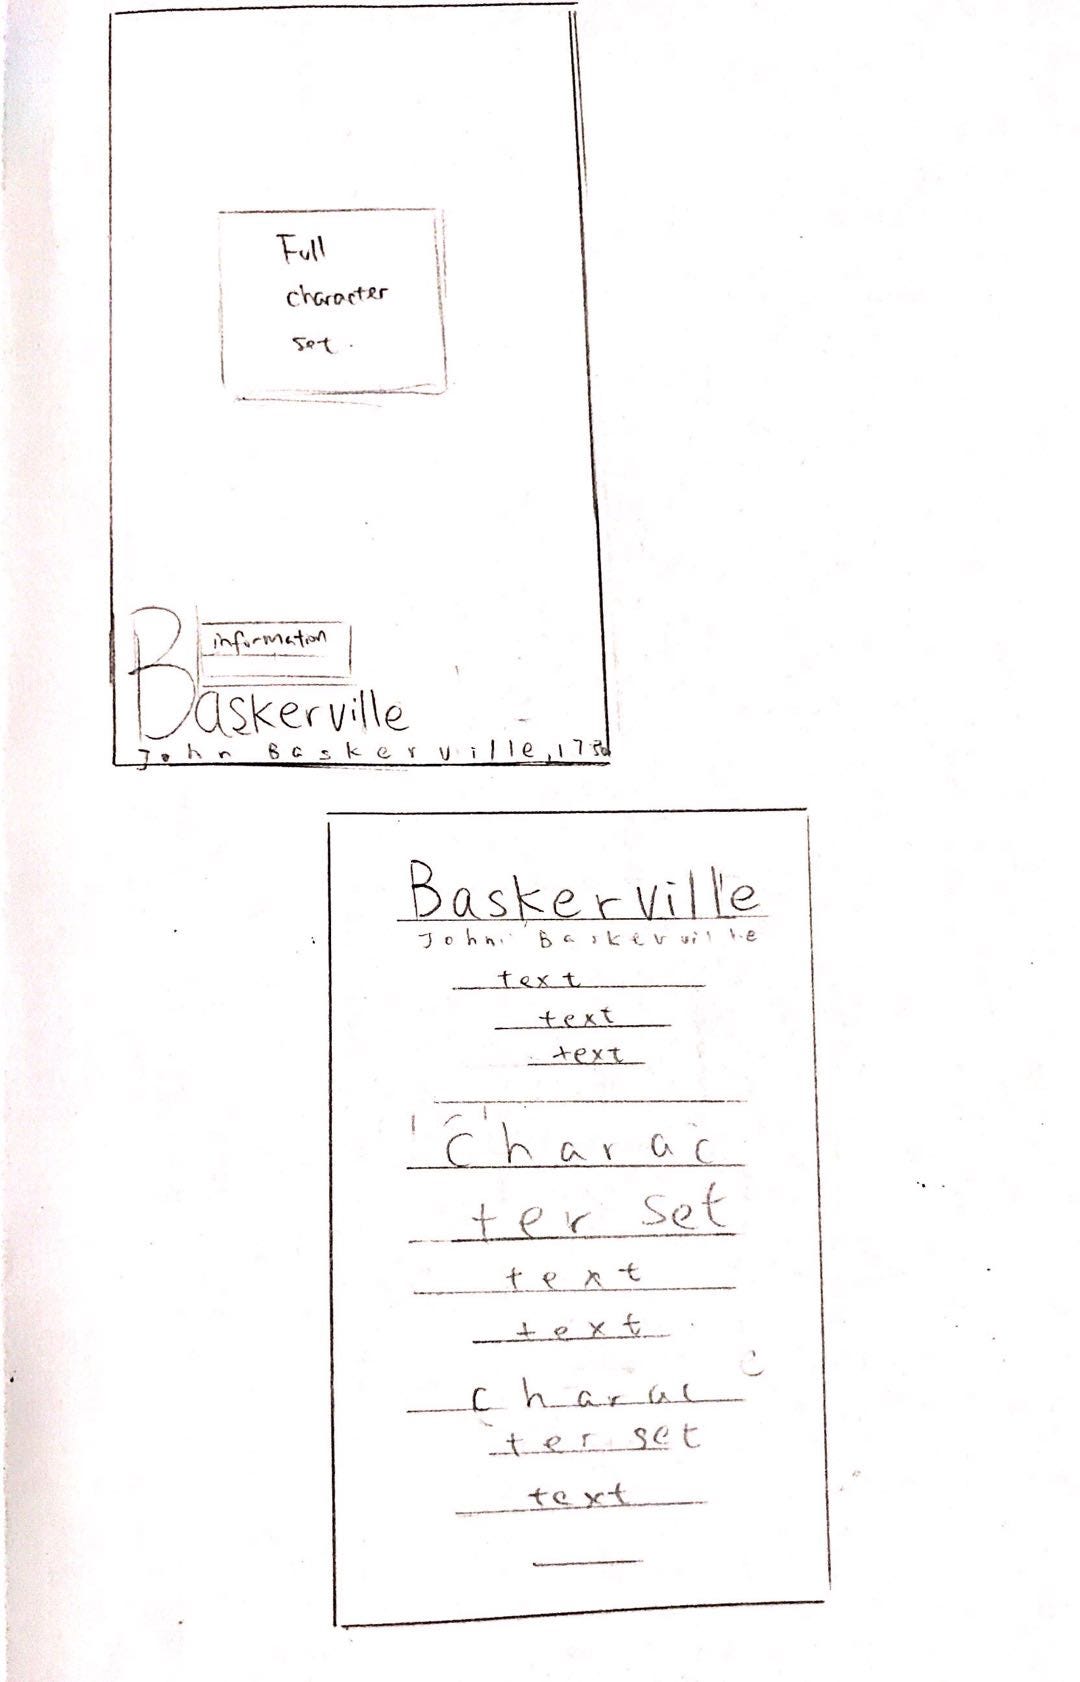 Full
character
set.
information
Baskerville
John Baskerville, 17
Baskerville
John Baskerville
text
text
text
Charac
ter set
text
text
charac
ter set
text